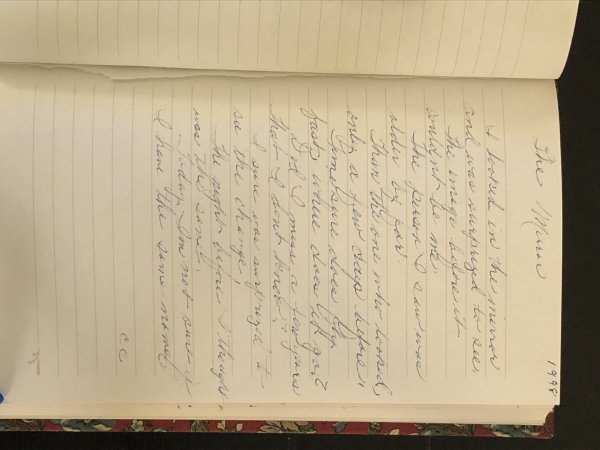 1998
The Mirror
I looked in the mirror
and was surprized to see.
The image before it
couldn't be me.
The person I saw was
older by far.
Than the one who looked,
only a few days before.
Time sure does fly
fast, where does life go?
Did I miss a few years
that I don't know?
I sure was surprize to
see the change,
The night before I thought
was the same.
Today I'm not sure if
I have the same name.
C.C.